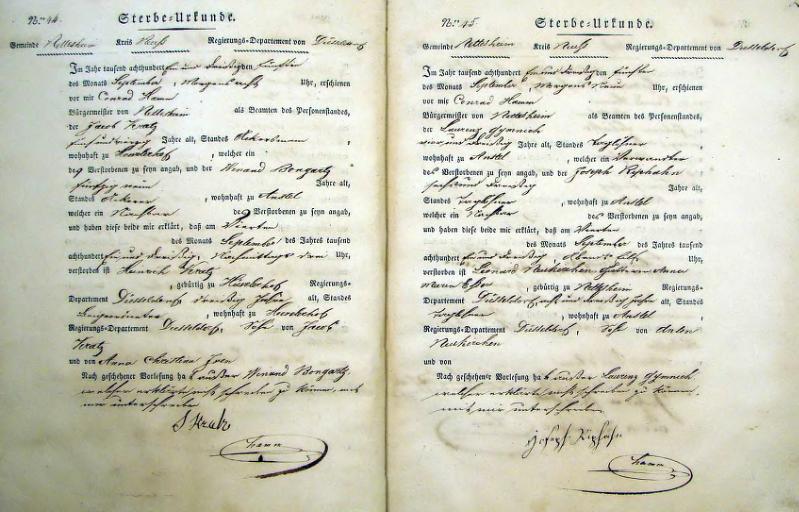 Nro 44.
Sterbe-Urkunde.
Gemeinde Nettesheim Kreis Neuß Regierungs-Departement von Düsseldorf
Im Jahr tausend achthundert ein und dreißig den fünften
des Monats September, Morgens Uhr, erschienen
vor mir Conrad Hamm
Bürgermeister von Nettesheim als Beamten des Personenstandes,
der Jacob Kratz
Jahre alt, Standes Ackersmann
wohnhaft zu , welcher ein
des Verstorbenen zu seyn angab, und der Winand Bongartz
fünfzig neun Jahre alt,
Standes Ackerer , wohnhaft zu Anstel
welcher ein Nachbar des Verstorbenen zu seyn angab,
und haben diese beide mir erklärt, daß am Vierten
des Monats September des Jahres tausend
achthundert ein und dreißig, Nachmittags drei Uhr,
verstorben ist Heinrich Kratz
, gebürtig zu Regierungs-
Departement Düsseldorf dreißig Jahre alt, Standes
, wohnhaft zu
Regierungs-Departement Düsseldorf, Sohn von Jacob
Kratz
und von Anna Christina
Nach geschehener Vorlesung hat außer Winand Bongartz,
welcher erklärte nicht schreiben zu können, mit
mir unterschrieben
J Kratz
Hamm
Nro 45.
Sterbe-Urkunde.
Gemeinde Nettesheim Kreis Neuß Regierungs-Departement von Düsseldorf
Im Jahr tausend achthundert ein und dreißig fünften
des Monats September, Morgens neun Uhr, erschienen
vor mir Conrad Hamm
Bürgermeister von Nettesheim als Beamten des Personenstandes,
der Laurenz Gymnich
vier und dreißig Jahre alt, Standes Taglöhner
wohnhaft zu Anstel , welcher ein Verwandter
des Verstorbenen zu seyn angab, und der Joseph Riphahn
sechs und dreißig Jahre alt,
Standes Taglöhner , wohnhaft zu Anstel
welcher ein Nachbar des Verstorbenen zu seyn angab,
und haben diese beide mir erklärt, daß am Vierten
des Monats September des Jahres tausend
achthundert ein und dreißig Abends Uhr,
verstorben ist Leonard Neukirchen Anna
Maria Esser , gebürtig zu Nettesheim Regierungs-
Departement Düsseldorf und dreißig Jahre alt, Standes
Taglöhner , wohnhaft zu Anstel
Regierungs-Departement Düsseldorf, Sohn von
Neukirchen
und von
Nach geschehener Vorlesung hat außer Laurenz Gymnich
welcher erklärte nicht schreiben zu können,
mit mir unterschrieben
Joseph Riphahn
Hamm